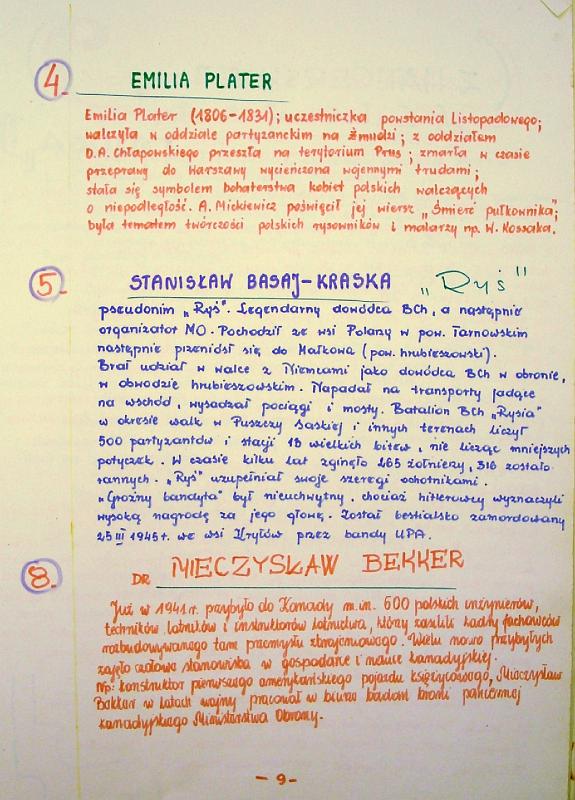 4. EMILIA PLATER
Emilia Plater (1806-1831); uczestniczka powstania Listopadowego;
walczyła w oddziale partyzanckim na Żmudzi; z oddziałem
D.A. Chłapowskiego przeszła na terytorium Prus; zmarła w czasie
przeprawy do Warszawy wycieńczona wojennymi trudami;
stała się symbolem bohaterstwa kobiet polskich walczących
o niepodległość. A. Mickiewicz poświęcił jej wiersz „Śmierć pułkownika";
była tematem twórczości polskich rysowników i malarzy np. W. Kossaka.
5. STANISŁAW BASAJ-KRASKA „Ryś"
pseudonim „Ryś". Legendarny dowódca BCh, a następnie
organizator MO. Pochodził ze wsi Polany w pow. Tarnowskim
następnie przeniósł się do Małkowa (pow. hrubieszowski).
Brał udział w walce z Niemcami jako dowódca BCh w obronie,
w obwodzie hrubieszowskim. Napadał na transporty jadące
na wschód, wysadzał pociągi i mosty. Batalion BCh „Rysia"
w okresie walk w Puszczy Saskiej i innych terenach liczył
500 partyzantów i stacji 13 wielkich bitew, nie licząc mniejszych
potyczek. W czasie kilku lat zginęło 165 żołnierzy, 316 zostało
rannych. „Ryś" uzupełniał swoje szeregi ochotnikami.
„Groźny bandyta" był nieuchwytny, chociaż hitlerowcy wyznaczyli
wysoką nagrodę za jego głowę. Został bestialsko zamordowany
25 III 1945 r. we wsi Kryłów przez bandy UPA.
8. DR MIECZYSŁAW BEKKER
Już w 1941 r. przybyło do Kanady m.in. 600 polskich inżynierów,
techników, lotników i instruktorów lotnictwa, którzy zasilili kadry fachowców
rozbudowywanego tam przemysłu zbrojeniowego. Wielu nowo przybyłych
zajęło czołowe stanowiska w gospodarce i nauce kanadyjskiej.
Np: konstruktor pierwszego amerykańskiego pojazdu księżycowego, Mieczysław
Bekker w latach wojny pracował w biurze badań broni pancernej
kanadyjskiego Ministerstwa Obrony.
- 9 -